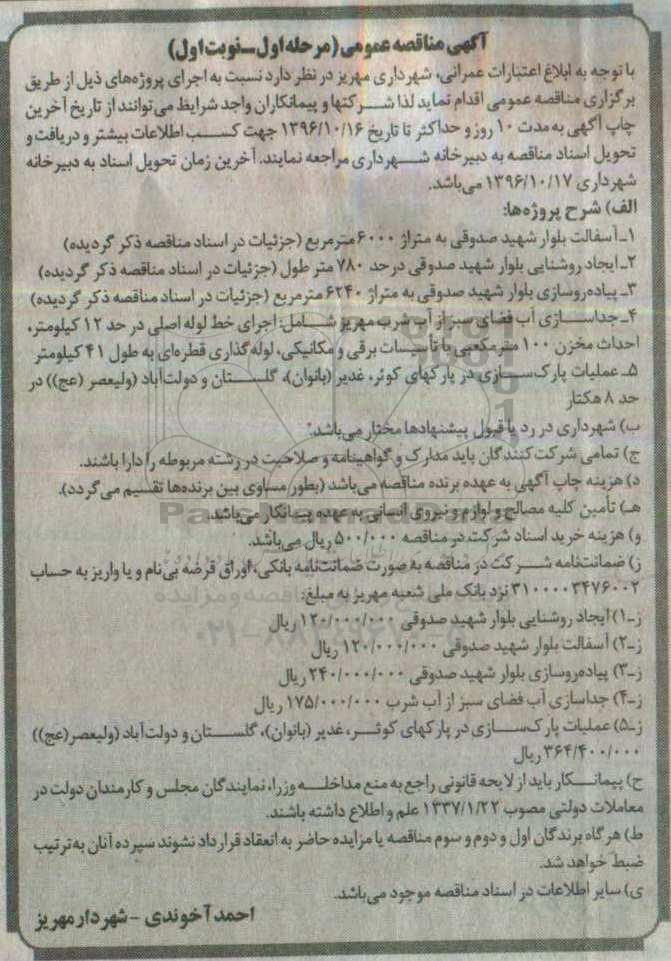 آگهی مناقصه عمومی (مرحله اول_نوبت اول)
با توجه به ابلاغ اعتبارات عمرانی، شهرداری مهریز در نظر دارد نسبت به اجرای پروژه‌های ذیل از طریق
برگزاری مناقصه عمومی اقدام نماید لذا شرکتها و پیمانکاران واجد شرایط می‌توانند از تاریخ آخرین
چاپ آگهی به مدت ۱۰ روز و حداکثر تا تاریخ ۱۳۹۶/۱۰/۱۶ جهت کسب اطلاعات بیشتر و دریافت و
تحویل اسناد مناقصه به دبیرخانه شهرداری مراجعه نمایند. آخرین زمان تحویل اسناد به دبیرخانه
شهرداری ۱۳۹۶/۱۰/۱۷ می‌باشد.
الف) شرح پروژه‌ها:
۱_ آسفالت بلوار شهید صدوقی به متراژ ۶۰۰۰ مترمربع (جزئیات در اسناد مناقصه ذکر گردیده)
۲_ ایجاد روشنایی بلوار شهید صدوقی در حد ۷۸۰ متر طول (جزئیات در اسناد مناقصه ذکر گردیده)
۳_ پیاده‌روسازی بلوار شهید صدوقی به متراژ ۶۲۴۰ مترمربع (جزئیات در اسناد مناقصه ذکر گردیده)
۴_ جداسازی آب فضای سبز از آب شرب مهریز شامل: اجرای خط لوله اصلی در حد ۱۲ کیلومتر،
احداث مخزن ۱۰۰ مترمکعبی با تأسیسات برقی و مکانیکی، لوله‌گذاری قطره‌ای به طول ۴۱ کیلومتر
۵_ عملیات پارک‌سازی در پارکهای کوثر، غدیر (بانوان)، گلستان و دولت‌آباد (ولیعصر (عج)) در
حد ۸ هکتار
ب) شهرداری در رد یا قبول پیشنهادها مختار می‌باشد.
ج) تمامی شرکت‌کنندگان باید مدارک و گواهینامه و صلاحیت در رشته مربوطه را دارا باشند.
د) هزینه چاپ آگهی به عهده برنده مناقصه می‌باشد (بطور مساوی بین برنده‌ها تقسیم می‌گردد).
هـ) تأمین کلیه مصالح و لوازم و نیروی انسانی به عهده پیمانکار می‌باشد.
و) هزینه خرید اسناد شرکت در مناقصه ۵۰۰/۰۰۰ ریال می‌باشد.
ز) ضمانتنامه شرکت در مناقصه به صورت ضمانتنامه بانکی، اوراق قرضه بی‌نام و یا واریز به حساب
۳۱۰۰۰۰۳۴۷۶۰۰۲ نزد بانک ملی شعبه مهریز به مبلغ:
ز_۱) ایجاد روشنایی بلوار شهید صدوقی ۱۲۰/۰۰۰/۰۰۰ ریال
ز_۲) آسفالت بلوار شهید صدوقی ۱۲۰/۰۰۰/۰۰۰ ریال
ز_۳) پیاده‌روسازی بلوار شهید صدوقی ۲۴۰/۰۰۰/۰۰۰ ریال
ز_۴) جداسازی آب فضای سبز از آب شرب ۱۷۵/۰۰۰/۰۰۰ ریال
ز_۵) عملیات پارک‌سازی در پارکهای کوثر، غدیر (بانوان)، گلستان و دولت‌آباد (ولیعصر (عج))
۳۶۴/۴۰۰/۰۰۰ ریال
ح) پیمانکار باید از لایحه قانونی راجع به منع مداخله وزرا، نمایندگان مجلس و کارمندان دولت در
معاملات دولتی مصوب ۱۳۳۷/۱/۲۲ علم و اطلاع داشته باشند.
ط) هرگاه برندگان اول و دوم و سوم مناقصه یا مزایده حاضر به انعقاد قرارداد نشوند سپرده آنان به ترتیب
ضبط خواهد شد.
ی) سایر اطلاعات در اسناد مناقصه موجود می‌باشد.
احمد آخوندی - شهردار مهریز